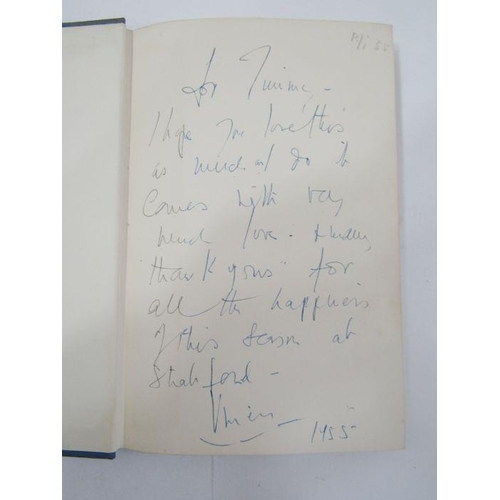 for Timmy -
I hope you love this
as much as I do it
comes with very
much love - &
"thank yous" for
all the happiness
of this season at
Stratford -
Vivien
1955